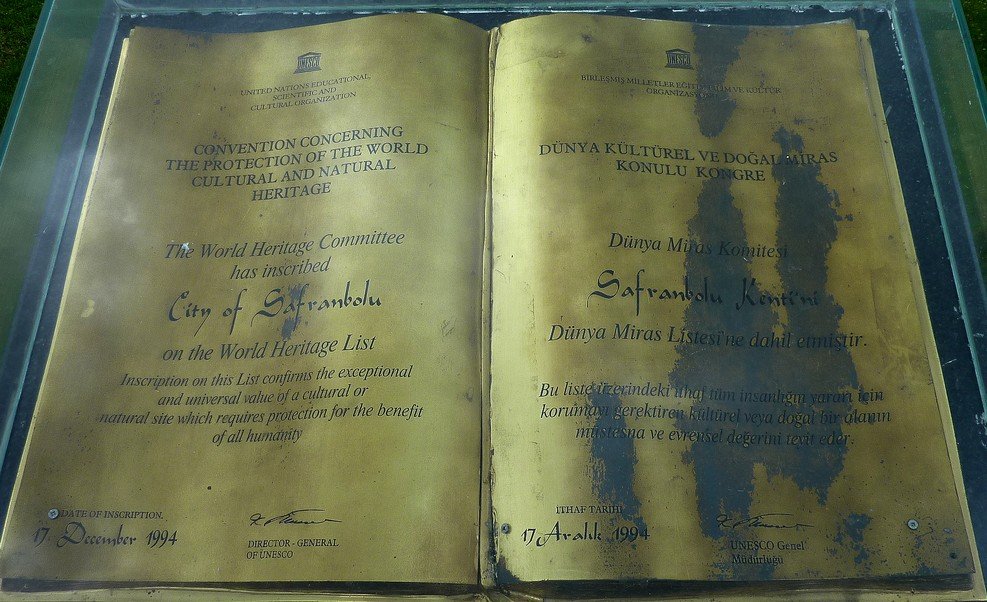 UNESCO
UNITED NATIONS EDUCATIONAL,
SCIENTIFIC AND
CULTURAL ORGANIZATION
CONVENTION CONCERNING
THE PROTECTION OF THE WORLD
CULTURAL AND NATURAL
HERITAGE
The World Heritage Committee
has inscribed
City of Safranbolu
on the World Heritage List
Inscription on this List confirms the exceptional
and universal value of a cultural or
natural site which requires protection for the benefit
of all humanity
DATE OF INSCRIPTION,
17 December 1994
DIRECTOR - GENERAL
OF UNESCO
UNESCO
BİRLEŞMİŞ MİLLETLER EĞİTİM BİLİM VE KÜLTÜR
ORGANİZASYONU
DÜNYA KÜLTÜREL VE DOĞAL MİRAS
KONULU KONGRE
Dünya Miras Komitesi
Safranbolu Kenti'ni
Dünya Miras Listesi'ne dahil etmiştir.
Bu liste üzerindeki ithaf tüm insanlığın yararı için
korumayı gerektiren kültürel veya doğal bir alanın
müstesna ve evrensel değerini teyit eder.
İTHAF TARİHİ
17 Aralık 1994
UNESCO Genel
Müdürlüğü